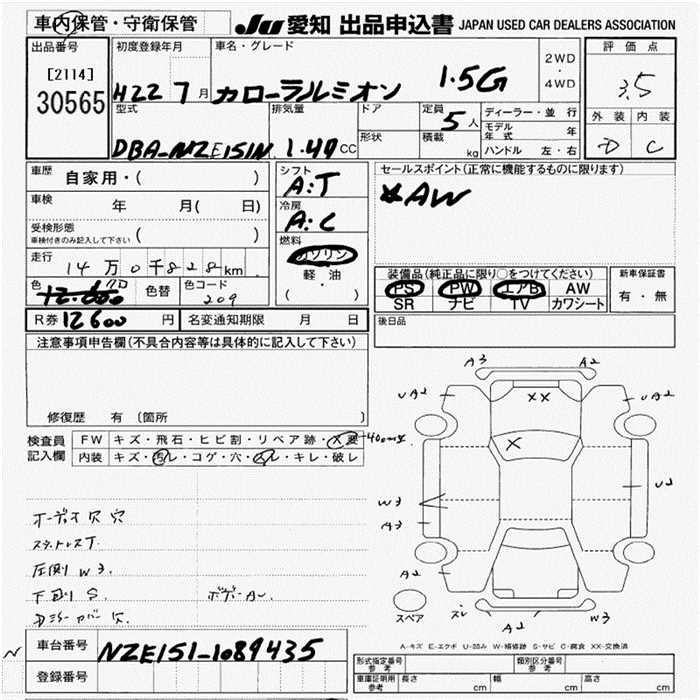 車内保管・守衛保管
JU 愛知 出品申込書 JAPAN USED CAR DEALERS ASSOCIATION
出品番号 初度登録年月 車名・グレード 2WD・4WD 評価点
[2114]
30565 H22 7月 カローラルミオン 1.5G 3.5
型式 排気量 ドア 定員 5人 ディーラー・並行 外装 内装
形状 積載 kg モデル年式 年
DBA-NZE151N 1.49 CC ハンドル 左・右 D C
車歴 自家用・( ) シフト A:T セールスポイント(正常に機能するものに限ります)
車検 年 月( 日) 冷房 A:C *AW
受検形態 ( )
車検付きのみ記入して下さい
燃料 ガソリン
走行 14万0千828km 軽・油
装備品(純正品に限り○をつけてください) 新車保証書
色 色替 色コード 209 ( ) PS PW エアB AW 有・無
12.600
SR ナビ TV カワシート
R券 12600円 名変通知期限 月 日 後日品
注意事項申告欄(不具合内容等は具体的に記入して下さい)
修復歴 有 〔箇所 〕
検査員 FW キズ・飛石・ヒビ割・リペア跡・X要
記入欄 内装 キズ・汚レ・コゲ・穴・スレ・キレ・破レ
A3 A2
UA2 XX UA2
X
W3 U2
A3
A2 A2
スペア ズレ A2 W3
オーディオ穴 穴
下廻り S
A-キズ E-エクボ U-凹み W-補修跡 S-サビ C-腐食 XX-交換済
N 車台番号 NZE151-1089435
登録番号
形式指定番号 参考 類別区分番号 参考
車庫証明用 参考 長さ cm 幅 cm 高さ cm